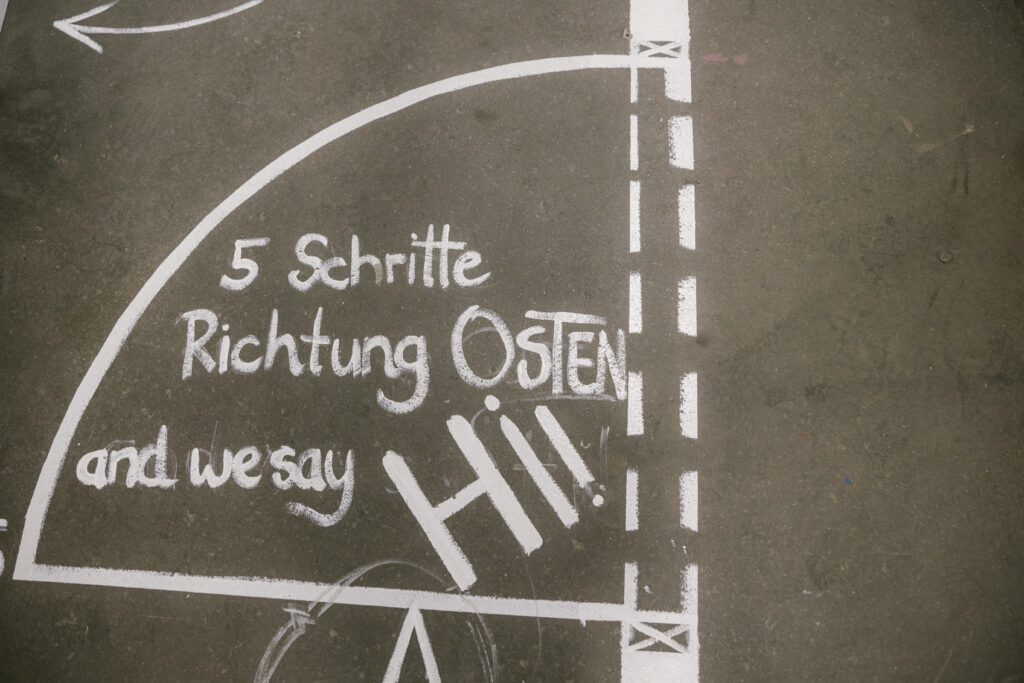 5 Schritte
Richtung OSTEN
and we say Hi!!